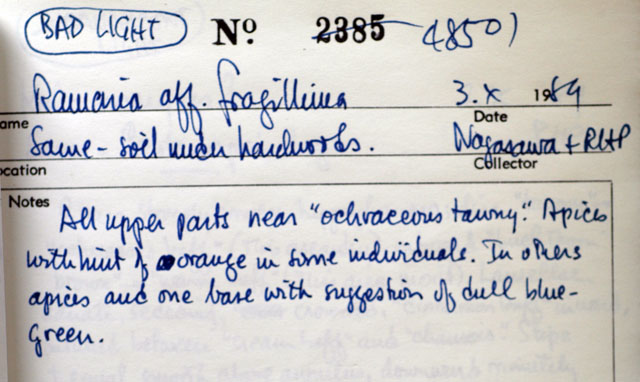 BAD LIGHT Nº 2385 48501
Ramaria aff. fragillima 3.X 1989
ame Date
Same - soil under hardwoods. Nagasawa + RHP
ocation Collector
Notes
All upper parts near "ochraceous tawny." Apices
with hint of orange in some individuals. In others
apices and one base with suggestion of dull blue-
green.